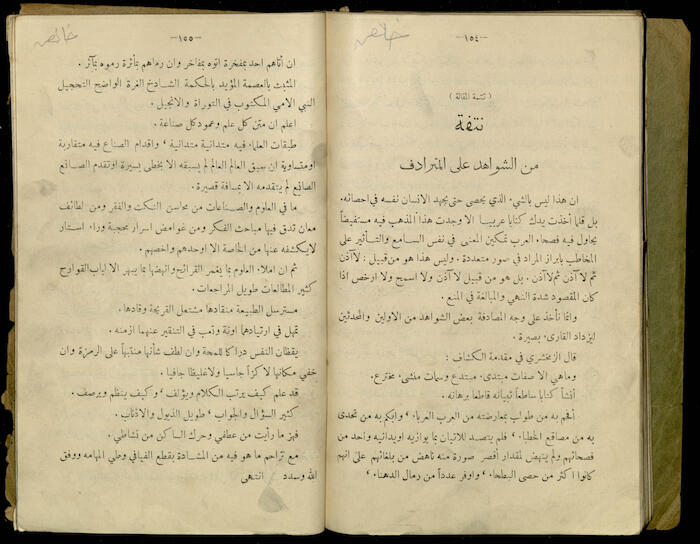 خالص
-١٥٤-
( تتمة المقالة )
نتفة
من الشواهد على المترادف
ان هذا ليس بالشيء الذي يحصى حتى يجهد الانسان نفسه في احصائه.
بل قلما أخذت يدك كتابا عربيا الا وجدت هذا المذهب فيه مستفيضاً
يحاول فيه فصحاء العرب تمكين المعنى في نفس السامع والتأثير على
المخاطب بابراز المراد في صور متعددة . وليس هذا هو من قبيل : لا آذن
ثم لا آذن ثم لا آذن . بل هو من قبيل لا آذن ولا اسمح ولا ارخص اذا
كان المقصود شدة النهي والمبالغة في المنع .
وانا نأخذ على وجه المصادفة بعض الشواهد من الاولين والمحدثين
ليزداد القارىء بصيرة .
قال الزمخشري في مقدمة الكشاف :
وماهي الا صفات مبتدىء مبتدع وسمات منشىء مخترع .
أنشأ كتابا ساطعاً تبيانه قاطعاً برهانه .
أفحم به من طولب بمعارضته من العرب العرباء ، وابكم به من تحدى
به من مصاقع الخطباء ، فلم يتصد للاتيان بما يوازيه اويدانيه واحد من
فصحائهم ولم ينهض لمقدار أقصر صورة منه ناهض من بلغائهم على انهم
كانوا اكثر من حصى البطحاء ، واوفر عدداً من رمال الدهناء ،
خالص
-١٥٥-
ان أتاهم احد بمفخرة اتوه بمفاخر وان رماهم بمأثرة رموه بمآثر .
المثبت بالعصمة المؤيد بالحكمة الشادخ الغرة الواضح التحجيل
النبي الامي المكتوب في التوراة والانجيل .
اعلم ان متن كل علم وعمود كل صناعة .
طبقات العلماء فيه متدانية متدانية ، واقدام الصناع فيه متقاربة
اومتساوية ان سبق العالم العالم لم يسبقه الا بخطى يسيرة اوتقدم الصانع
الصانع لم يتقدمه الا بمسافة قصيرة .
ما في العلوم والصناعات من محاسن النكت والفقر ومن لطائف
معان تدق فيها مباحث الفكر ومن غوامض اسرار محجبة وراء استار
لايكشف عنها من الخاصة الا اوحدهم واخصهم .
ثم ان املاء العلوم بما يغمر القرائح وانهضها بما يبهر الالباب القوارح
كثير المطالعات طويل المراجعات .
مسترسل الطبيعة منقادها مشتعل القريحة وقادها .
تمهل في ارتيادهما اونة وتعب في التنقير عنهما ازمنه .
يقظان النفس دراكا للمحة وان لطف شأنها منتبهاً على الرمزة وان
خفي مكانها لا كزاً جاسيا ولاغليظا جافيا .
قد علم كيف يرتب الكلام ويؤلف ، وكيف ينظم ويرصف .
كثير السؤال والجواب ، طويل الذيول والاذناب .
فهز ما رأيت من عطفي وحرك الساكن من نشاطي .
مع تراحم ما هو فيه من المشادة بقطع الفيافي وطي المهامه ووفق
الله وسدد انتهى